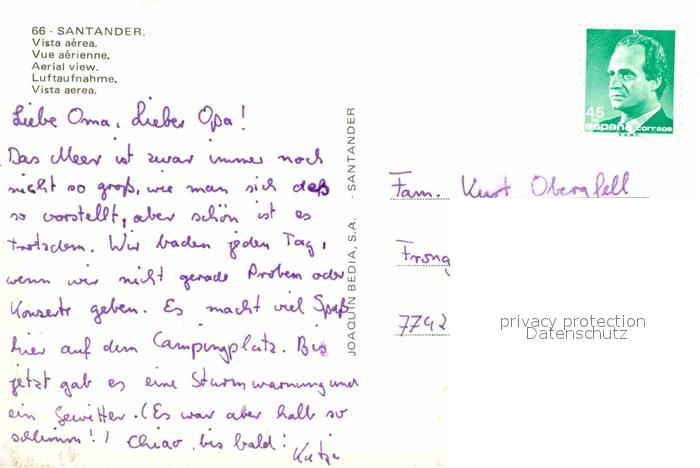 66 - SANTANDER.
Vista aérea.
Vue aérienne.
Aerial view.
Luftaufnahme.
Vista aerea.
Liebe Oma, Lieber Opa!
Das Meer ist zwar immer noch
nicht so groß, wie man sich das
so vorstellt, aber schön ist es
trotzdem. Wir baden jeden Tag,
wenn wir nicht gerade Proben oder
Konzerte geben. Es macht viel Spaß
hier auf dem Campingplatz. Bis
jetzt gab es eine Sturmwarnung und
ein Gewitter. (Es war aber halb so
schlimm!) Chiao, bis bald! Katja
JOAQUÍN BEDIA, S.A. - SANTANDER
45
españa correos
F.N.M.T.
Fam. Kurt Obergfell
7742
privacy protection
Datenschutz